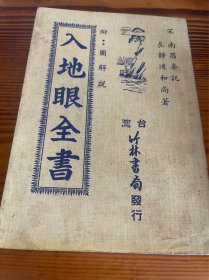 宋 南昌辜託
長靜道和尚著
附：圖解説
入地眼全書
台灣
竹林書局發行